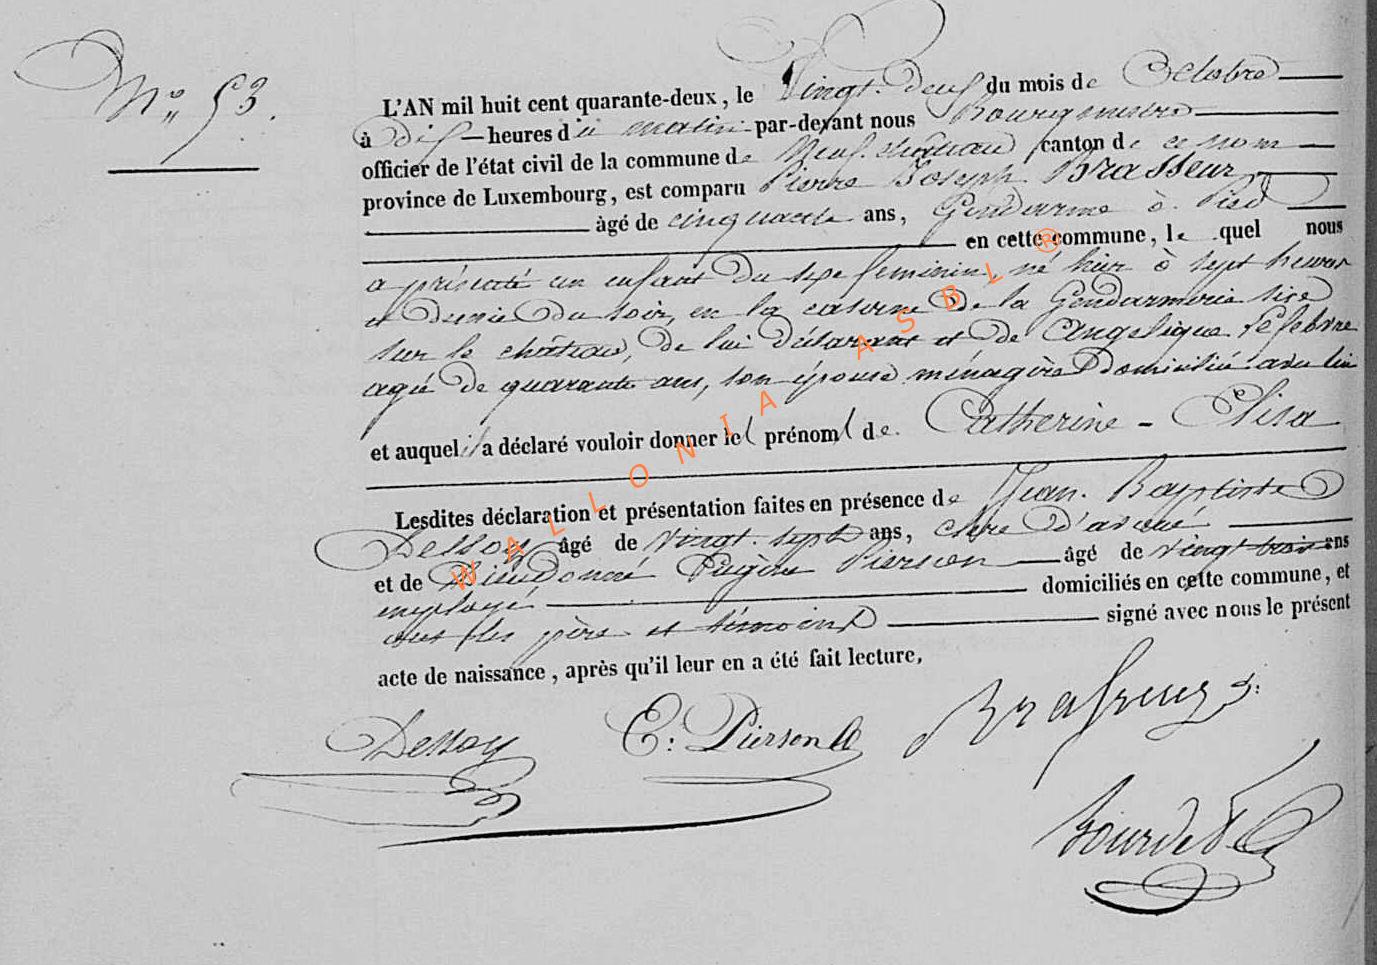 N° 53.
L'AN mil huit cent quarante-deux, le Vingt-deux du mois de Octobre
à dix heures du matin par-devant nous Bourgmestre
officier de l'état civil de la commune de Neufchâteau canton de ce nom
province de Luxembourg, est comparu Pierre Joseph Brasseur
âgé de cinquante ans, Gendarme à Pied
en cette commune, lequel nous
a présenté un enfant du sexe feminin, né hier à sept heures
et demie du soir, en la caserne de la Gendarmerie sise
sur le château, de lui déclarant et de Angelique Lefebvre
agée de quarante ans, son épouse ménagère domiciliée avec lui
et auquel il a déclaré vouloir donner le prénom de Catherine - Elisa
Lesdites déclaration et présentation faites en présence de Jean-Baptiste
Dessoy âgé de vingt-sept ans, clerc d'avoué
et de Dieudonné Eugène Pierson âgé de vingt trois ans
employé domiciliés en cette commune, et
ont les père et témoins signé avec nous le présent
acte de naissance, après qu'il leur en a été fait lecture.
Dessoy E: Pierson Brasseur
Bourdet
WALLONIA ASBL ®